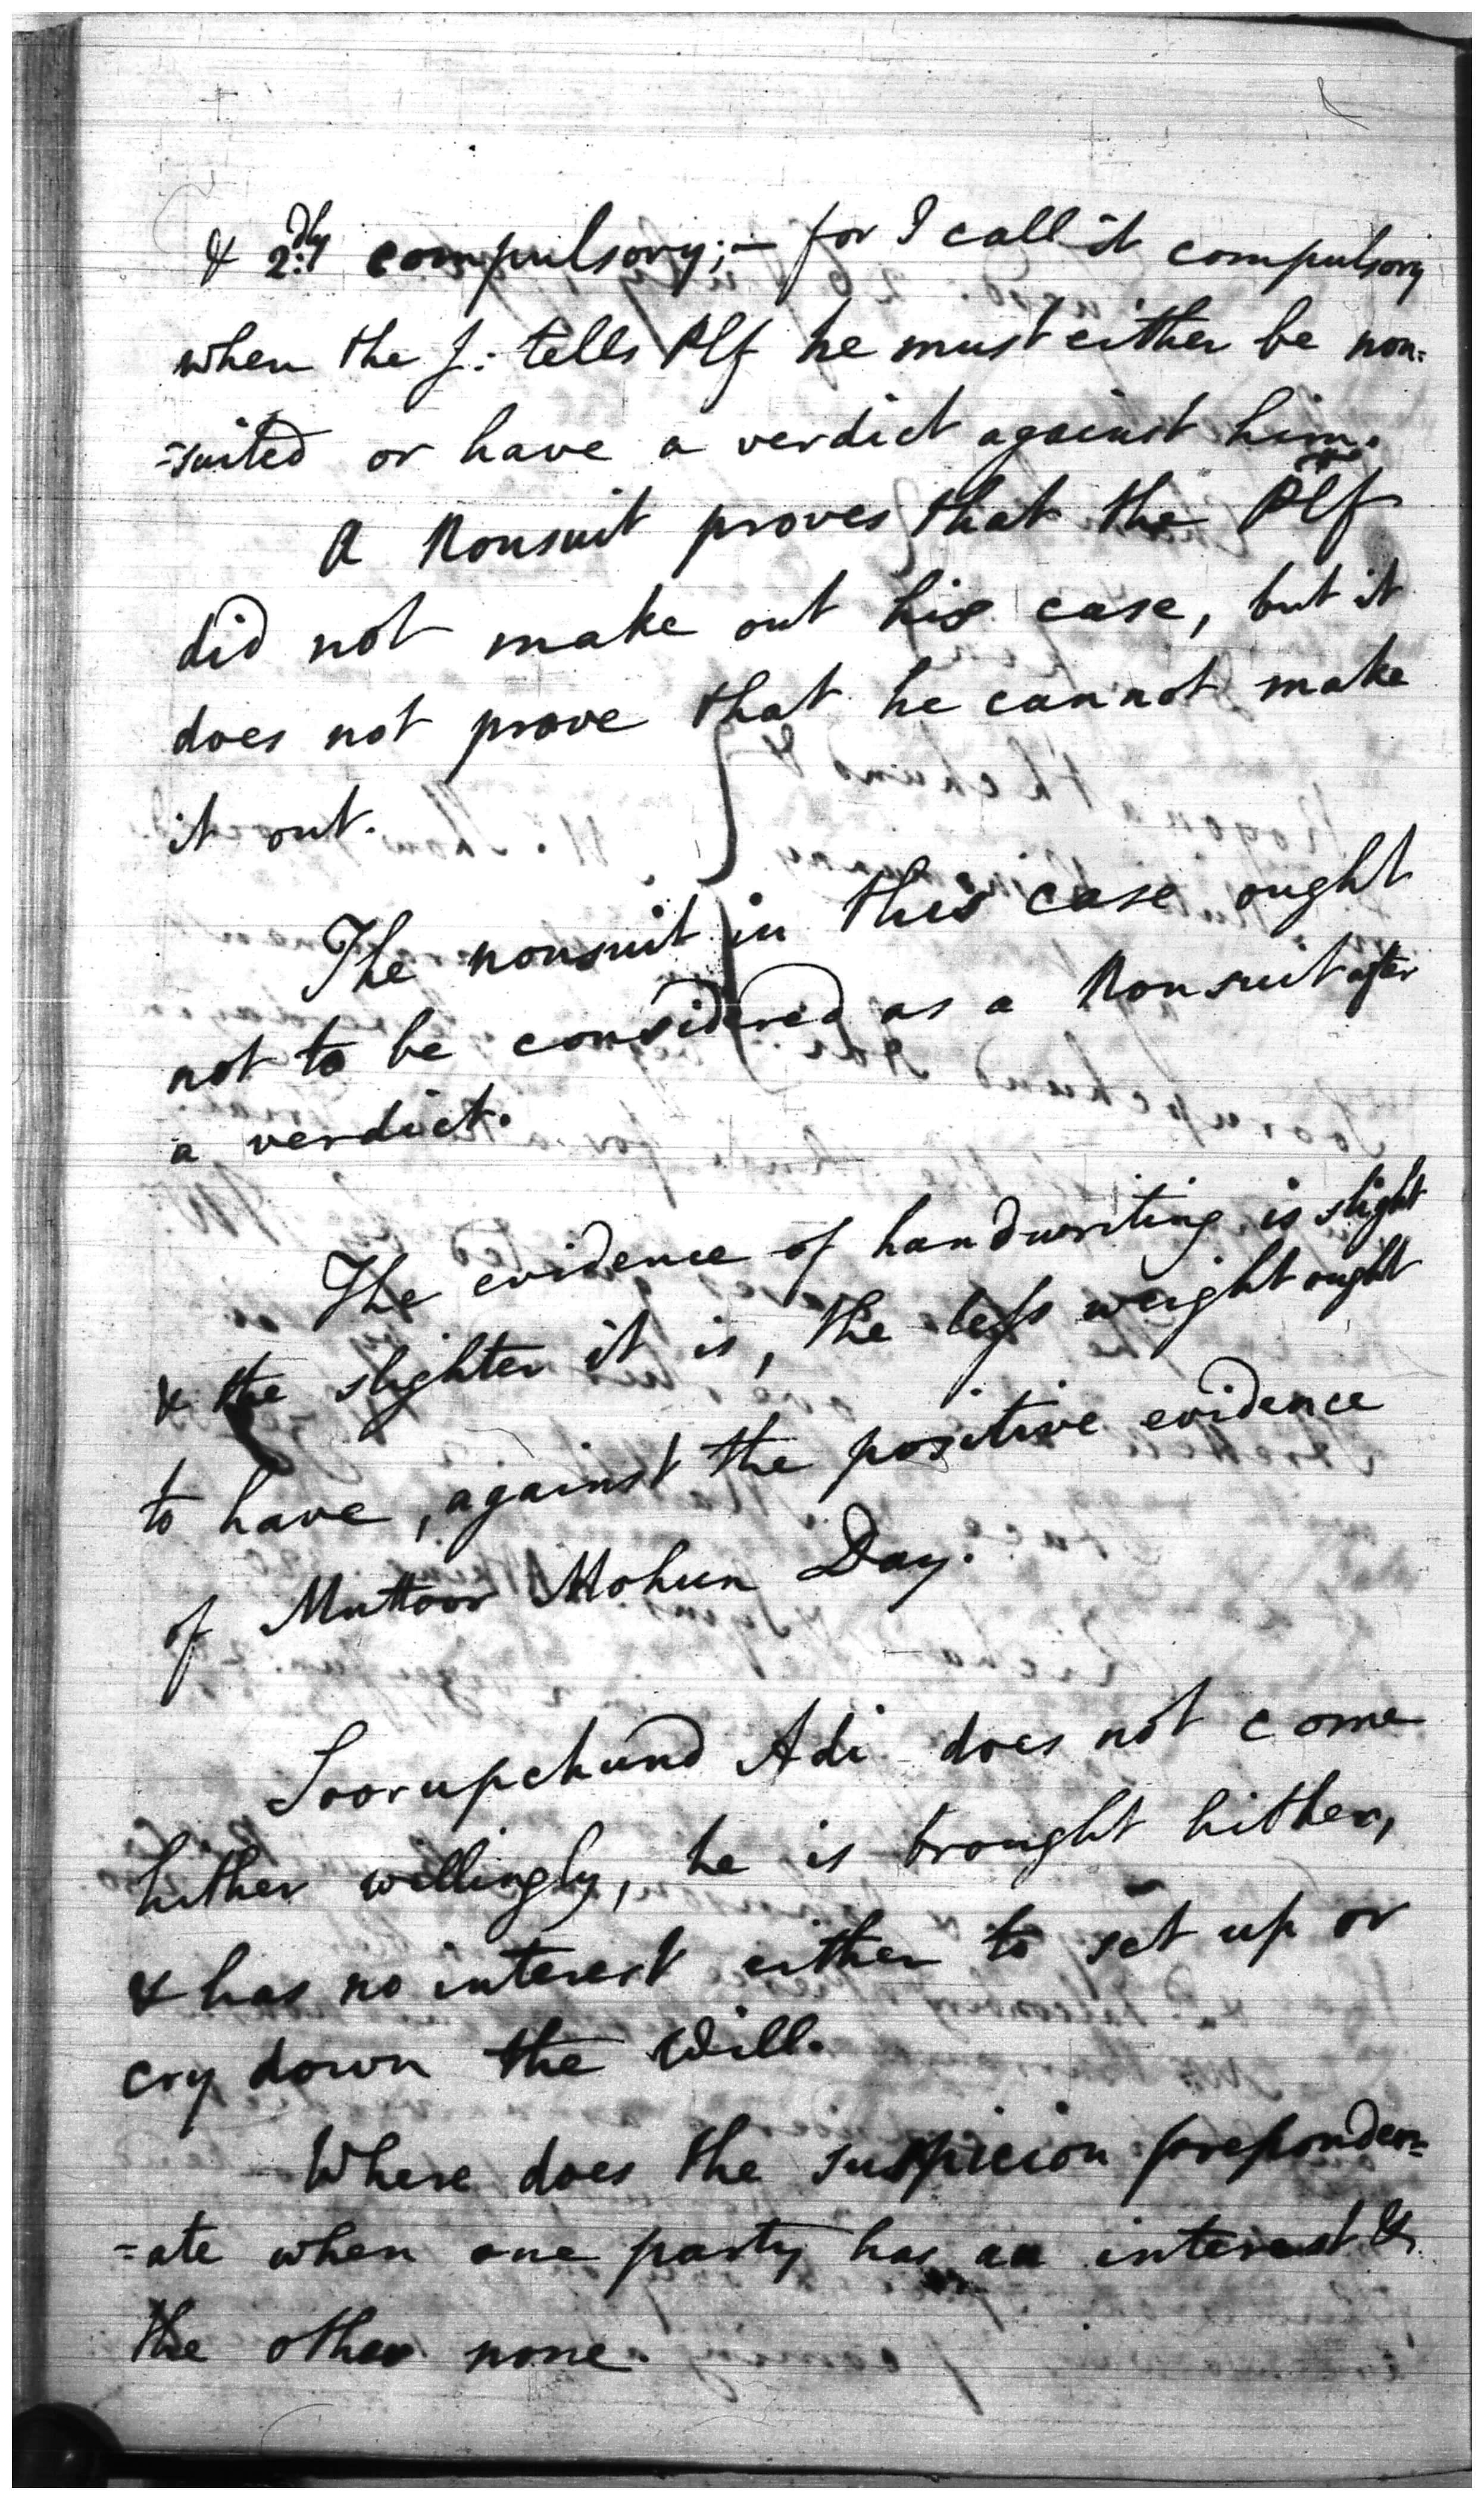 & 2.dly compulsory; – for I call it compulsory
when the J: tells Plf he must either be non=
=suited or have a verdict against him.
A Nonsuit proves that the Plf
did not make out his case, but it
does not prove that he cannot make
it out.
The nonsuit in this case ought
not to be considered as a Nonsuit after
a verdict.
The evidence of handwriting is slight
& the slighter it is, the less weight ought
to have, against the positive evidence
of Muttoor Mohun Day.
Soorupchund Adi does not come
hither willingly, he is brought hither,
& has no interest either to set up or
cry down the Will.
Where does the suspicion preponder=
=ate when one party has an interest &
the other none.